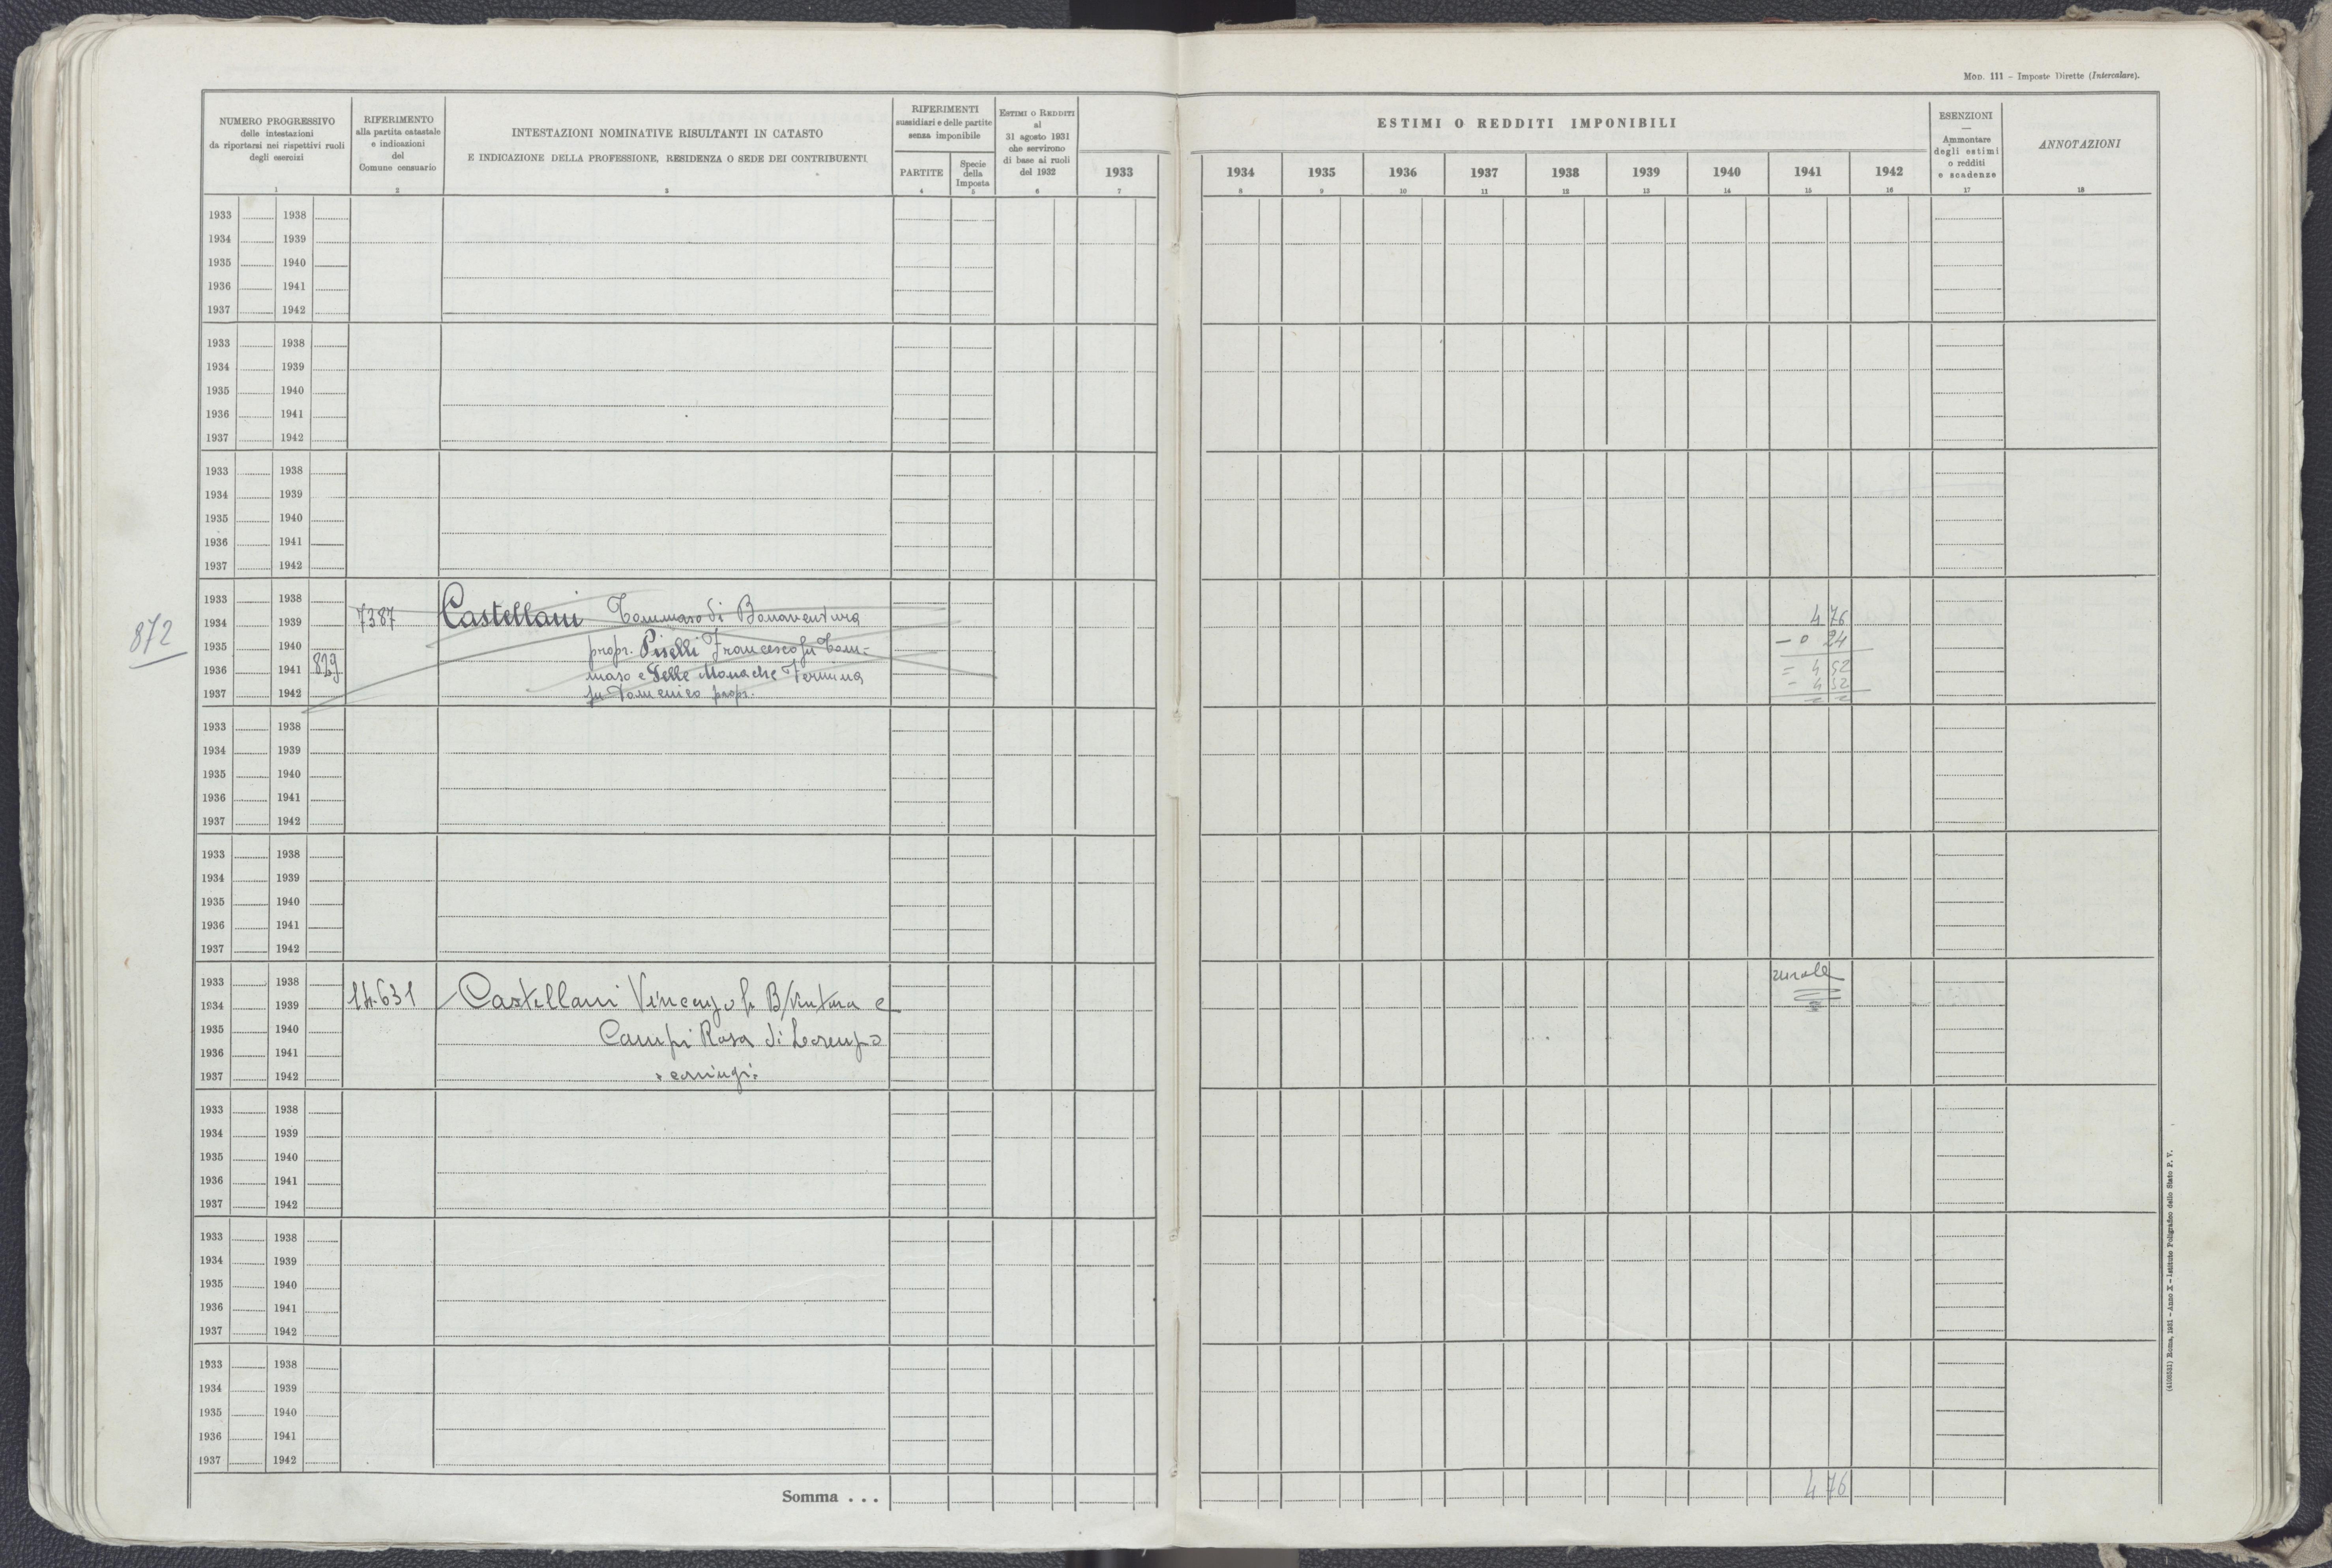 MOD. 111 – Imposte Dirette (Intercalare).
NUMERO PROGRESSIVO
delle intestazioni
da riportarsi nei rispettivi ruoli
degli esercizi
1
RIFERIMENTO
alla partita catastale
e indicazioni
del
Comune censuario
2
INTESTAZIONI NOMINATIVE RISULTANTI IN CATASTO
E INDICAZIONE DELLA PROFESSIONE, RESIDENZA O SEDE DEI CONTRIBUENTI
3
RIFERIMENTI
sussidiari e delle partite
senza imponibile
PARTITE
4
Specie
della
Imposta
5
ESTIMI O REDDITI
al
31 agosto 1931
che servirono
di base ai ruoli
del 1932
6
1933
7
ESTIMI O REDDITI IMPONIBILI
1934 1935 1936 1937 1938 1939 1940 1941 1942
8 9 10 11 12 13 14 15 16
ESENZIONI
—
Ammontare
degli estimi
o redditi
e scadenze
17
ANNOTAZIONI
18
1933 1938
1934 1939
1935 1940
1936 1941
1937 1942
1933 1938
1934 1939
1935 1940
1936 1941
1937 1942
1933 1938
1934 1939
1935 1940
1936 1941
1937 1942
872
1933 1938
1934 1939 7387 Castellani Tommaso di Bonaventura 4 76
1935 1940 propr. Piselli Francesco fu Tom- – 0 24
1936 1941 829 maso e Delle Monache Fermina = 4 52
1937 1942 fu Domenico propr. – 4 52
= =
1933 1938
1934 1939
1935 1940
1936 1941
1937 1942
1933 1938
1934 1939
1935 1940
1936 1941
1937 1942
1933 1938 rurale
1934 1939 14631 Castellani Vincenzo fu B/ventura e
1935 1940 Campi Rosa di Lorenzo
1936 1941
1937 1942 coniugi
1933 1938
1934 1939
1935 1940
1936 1941
1937 1942
1933 1938
1934 1939
1935 1940
1936 1941
1937 1942
1933 1938
1934 1939
1935 1940
1936 1941
1937 1942
Somma . . . 4 76
Roma, 1931 – Anno X – Istituto Poligrafico dello Stato P. V.